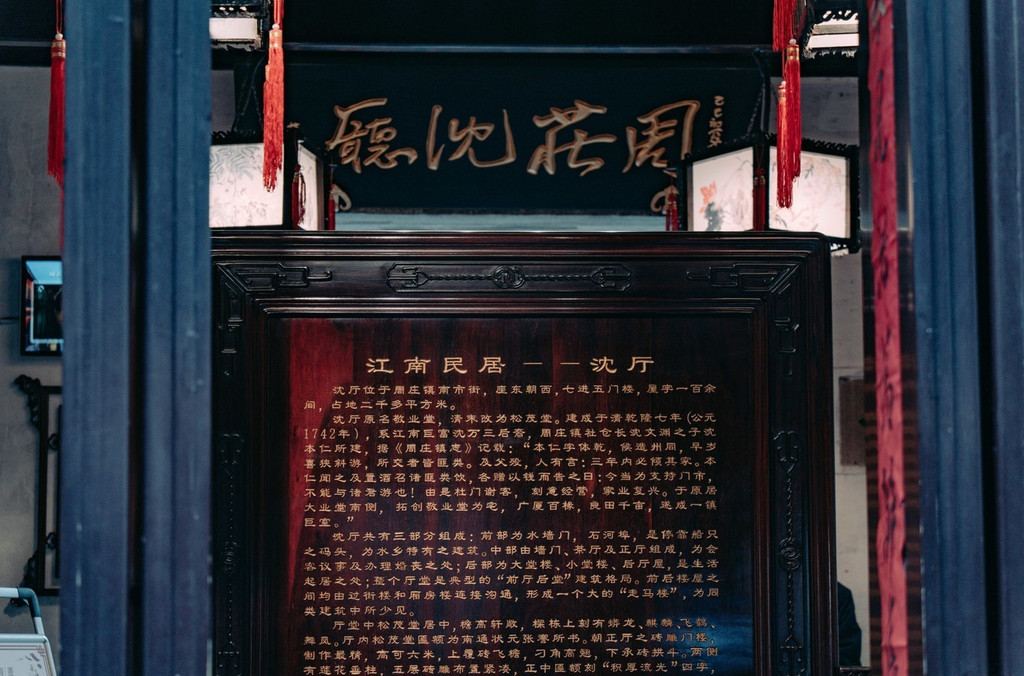 周莊沈廳
江南民居——沈厅
沈厅位于周庄镇南市街，座东朝西，七进五门楼，屋宇一百余
间，占地二千多平方米。
沈厅原名敬业堂，清末改为松茂堂。建成于清乾隆七年(公元
1742年)，系江南巨富沈万三后裔，周庄镇社仓长沈文渊之子沈
本仁所建，据《周庄镇志》记载：“本仁字体乾，候选州同，早岁
喜狭斜游，所交者皆匪类。及父殁，人有言：三年内必倾其家。本
仁闻之及置酒召诸匪类饮，各赠以钱而告之曰：今当为支持门市，
不能与诸君游也！由是杜门谢客，刻意经营，家业复兴。于原居
大业堂南侧，拓创敬业堂为宅，广厦百椽，良田千亩，遂成一镇
巨室。”
沈厅共有三部分组成：前部为水墙门，石河埠，是停靠船只
之码头，为水乡特有之建筑。中部由墙门、茶厅及正厅组成，为会
客议事及办理婚丧之处；后部为大堂楼、小堂楼、后厅屋，是生活
起居之处；整个厅堂是典型的“前厅后堂”建筑格局。前后楼屋之
间均由过街楼和厢房楼连接沟通，形成一个大的“走马楼”，为同
类建筑中所少见。
厅堂中松茂堂居中，檐高轩敞，梁栋上刻有蟒龙、麒麟、飞鹤、
舞凤。厅内松茂堂匾额为南通状元张謇所书。朝正厅之砖雕门楼，
制作最精，高可六米，上覆砖飞檐，刁角高翘，下承砖拱斗。两侧
有莲花垂柱，五层砖雕布置紧凑，正中匾额刻“积厚流光”四字，